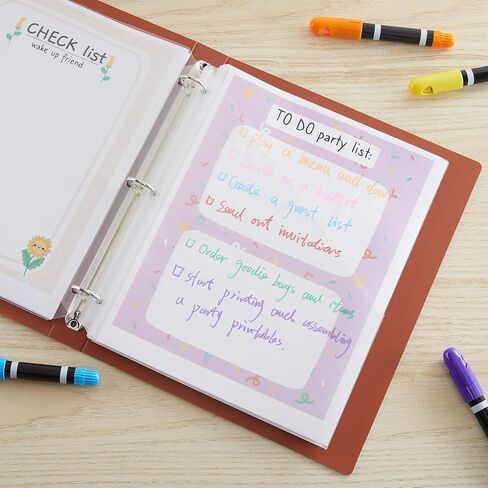 CHECK list
wake up friend
TO DO party list:
Play a menu and decor
Decide on a budget
Create a guest list
Send out invitations
Order goodie bags and items
Start printing and assembling
a party printables.